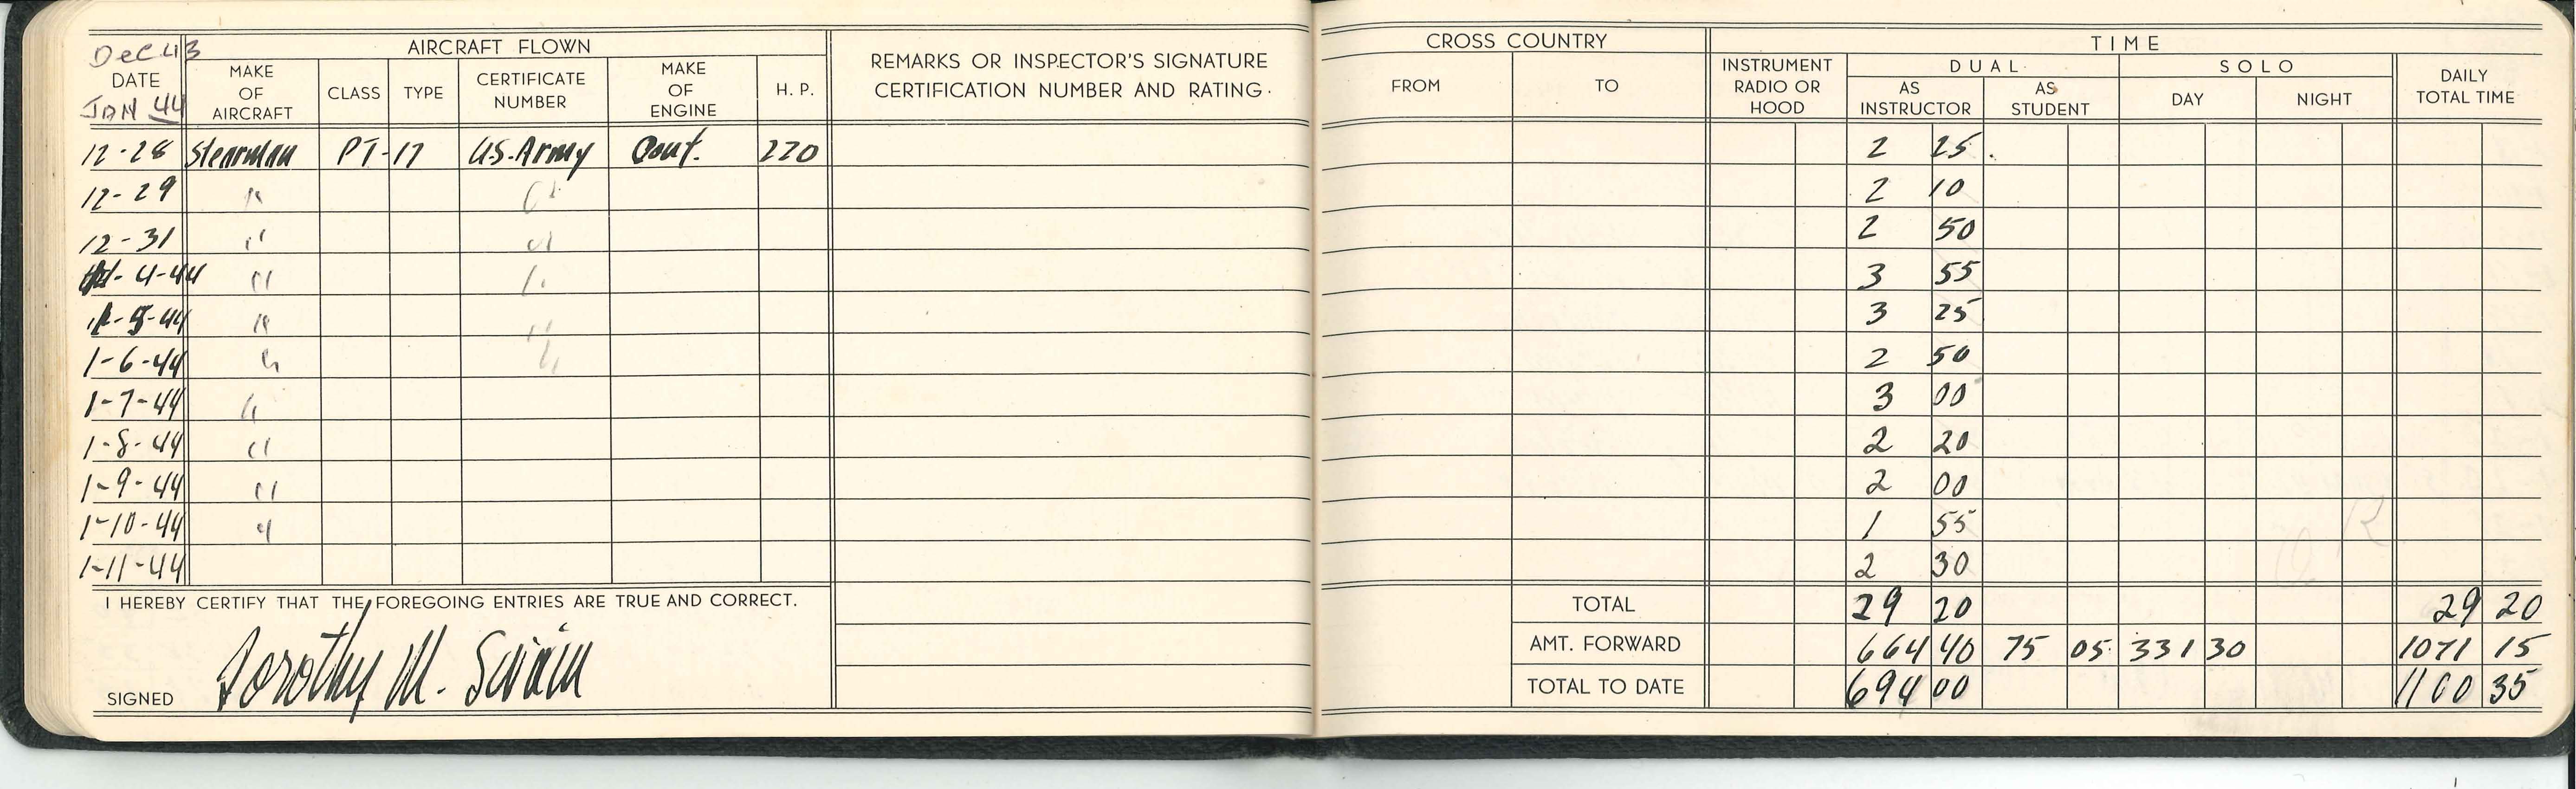 Dec 43
AIRCRAFT FLOWN
DATE
MAKE OF AIRCRAFT
CLASS
TYPE
CERTIFICATE NUMBER
MAKE OF ENGINE
H. P.
JAN 44
REMARKS OR INSPECTOR'S SIGNATURE
CERTIFICATION NUMBER AND RATING.
CROSS COUNTRY
FROM
TO
TIME
INSTRUMENT RADIO OR HOOD
DUAL
AS INSTRUCTOR
AS STUDENT
SOLO
DAY
NIGHT
DAILY TOTAL TIME
12-28 Stearman PT-17 U.S. Army Cont. 220 2 25
12-29 " " 2 10
12-31 " " 2 50
1-4-44 " " 3 55
1-5-44 " " 3 25
1-6-44 " " 2 50
1-7-44 " 3 00
1-8-44 " 2 20
1-9-44 " 2 00
1-10-44 " 1 55
1-11-44 2 30
I HEREBY CERTIFY THAT THE FOREGOING ENTRIES ARE TRUE AND CORRECT.
SIGNED Dorothy M. Swain
TOTAL 29 20 29 20
AMT. FORWARD 664 40 75 05 331 30 1071 15
TOTAL TO DATE 694 00 1100 35